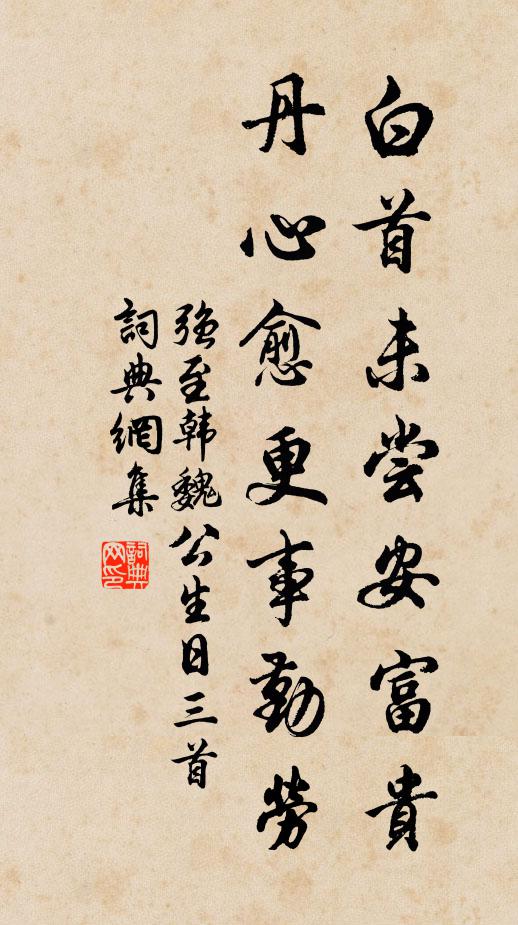 白首未尝安富貴
丹心愈更事勤勞
强至韩魏公生日三首
詞典網集
詞典网印